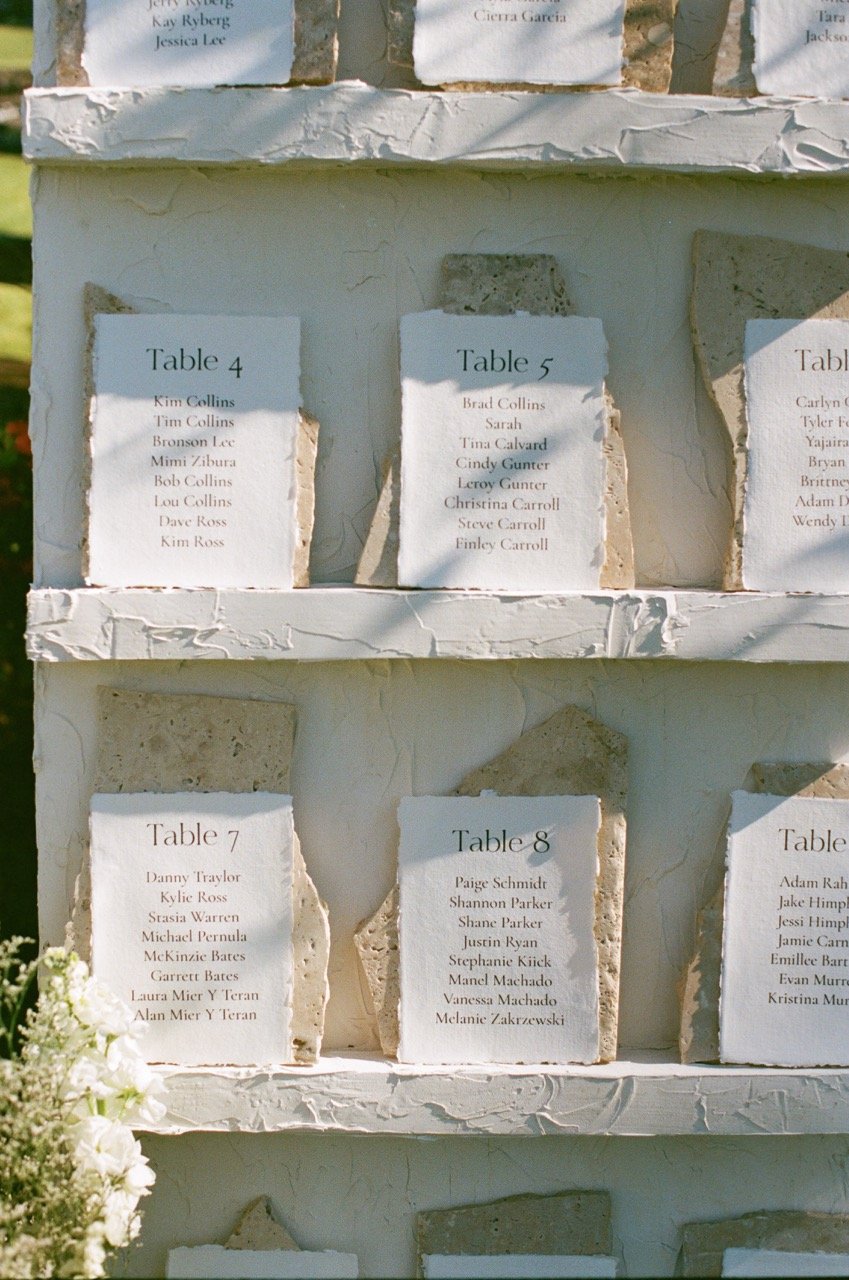 Jerry Ryberg
Kay Ryberg
Jessica Lee
Garcia
Cierra Garcia
Tara
Jackson
Table 4
Kim Collins
Tim Collins
Bronson Lee
Mimi Zibura
Bob Collins
Lou Collins
Dave Ross
Kim Ross
Table 5
Brad Collins
Sarah
Tina Calvard
Cindy Gunter
Leroy Gunter
Christina Carroll
Steve Carroll
Finley Carroll
Tabl
Carlyn
Tyler
Yajaira
Bryan
Brittney
Adam
Wendy
Table 7
Danny Traylor
Kylie Ross
Stasia Warren
Michael Pernula
McKinzie Bates
Garrett Bates
Laura Mier Y Teran
Alan Mier Y Teran
Table 8
Paige Schmidt
Shannon Parker
Shane Parker
Justin Ryan
Stephanie Kiick
Manel Machado
Vanessa Machado
Melanie Zakrzewski
Table
Adam Rah
Jake Himpl
Jessi Himpl
Jamie Carn
Emillee Bart
Evan Murr
Kristina Mur